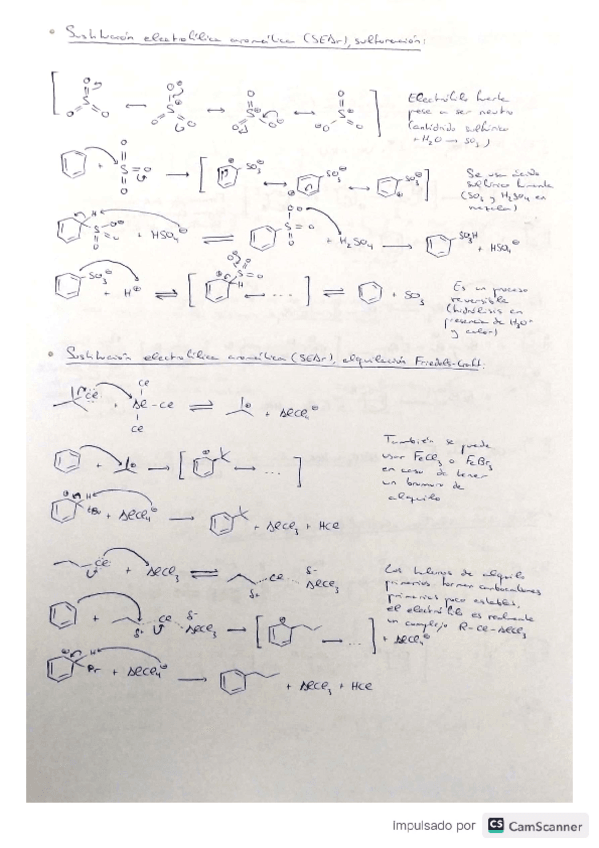 • Sustitución electrofílica aromática (SEAr), sulfonación:
Electrófilo fuerte
pese a ser neutro
(anhídrido sulfúrico
+ H2O → SO3)
+ → SO3⊖ SO3⊖ SO3⊖
Se usa ácido
sulfúrico fumante
(SO3 y H2SO4 en
mezcla)
H + HSO4⊖ ⇌ + H2SO4 → SO3H + HSO4⊖
SO3⊖ + H⊕ ⇌ [ H ↔ ... ] ⇌ + SO3
Es un proceso
reversible
(hidrólisis en
presencia de H3O+
y calor)
• Sustitución electrofílica aromática (SEAr), alquilación Friedel-Craft.
Cl + Al-Cl ⇌ + AlCl4⊖
+ → [ ↔ ... ]
También se puede
usar FeCl3 o FeBr3
en caso de tener
un bromuro de
alquilo
H tBu + AlCl4⊖ → + AlCl3 + HCl
Cl + AlCl3 ⇌ δ+ Cl δ- AlCl3
Los haluros de alquilo
primarios forman carbocationes
primarios poco estables,
el electrófilo es realmente
un complejo R-Cl-AlCl3
+ δ+ Cl δ- AlCl3 → [ ↔ ... ] + AlCl4⊖
H Pr + AlCl4⊖ → + AlCl3 + HCl
Impulsado por CS CamScanner